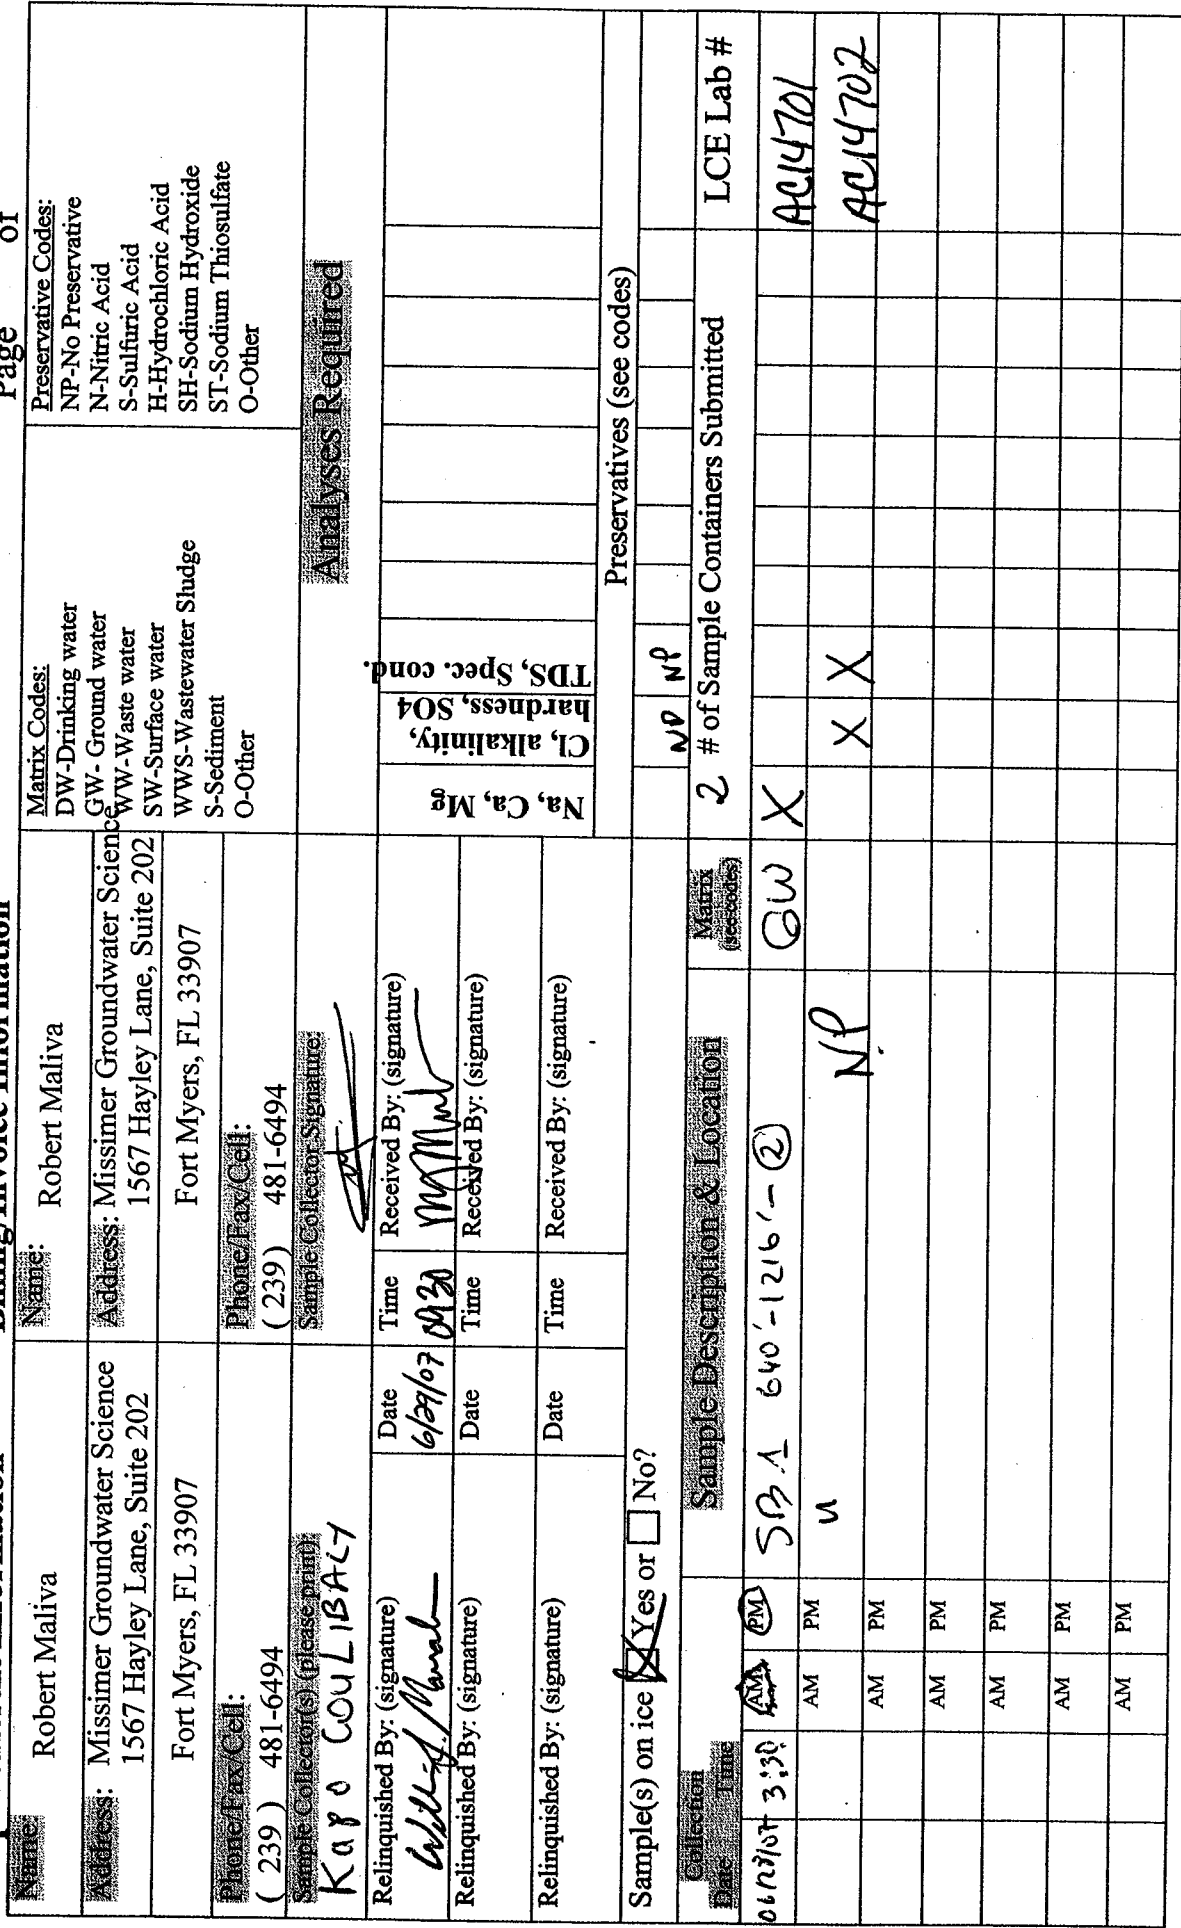 Page of
Billing/Invoice Information
Name: Robert Maliva
Address: Missimer Groundwater Science
1567 Hayley Lane, Suite 202
Fort Myers, FL 33907
Phone/Fax/Cell:
( 239 ) 481-6494
Name: Robert Maliva
Address: Missimer Groundwater Science
1567 Hayley Lane, Suite 202
Fort Myers, FL 33907
Phone/Fax/Cell:
( 239) 481-6494
Matrix Codes:
DW-Drinking water
GW- Ground water
WW-Waste water
SW-Surface water
WWS-Wastewater Sludge
S-Sediment
O-Other
Preservative Codes:
NP-No Preservative
N-Nitric Acid
S-Sulfuric Acid
H-Hydrochloric Acid
SH-Sodium Hydroxide
ST-Sodium Thiosulfate
O-Other
Sample Collector(s) (please print):
Kapo COULIBALY
Sample Collector Signature:
Analyses Required
Relinquished By: (signature) Date Time Received By: (signature)
6/29/07 0930
Relinquished By: (signature) Date Time Received By: (signature)
Relinquished By: (signature) Date Time Received By: (signature)
Na, Ca, Mg
Cl, alkalinity,
hardness, SO4
TDS, Spec. cond.
Preservatives (see codes)
NP NP
Sample(s) on ice Yes or No?
Collection
Date Time
Sample Description & Location
Matrix
(see codes)
2 # of Sample Containers Submitted
LCE Lab #
3:30 AM PM SB 1 640'-1216'- 2 GW X AC14701
AM PM u NP X X AC14702
AM PM
AM PM
AM PM
AM PM
AM PM